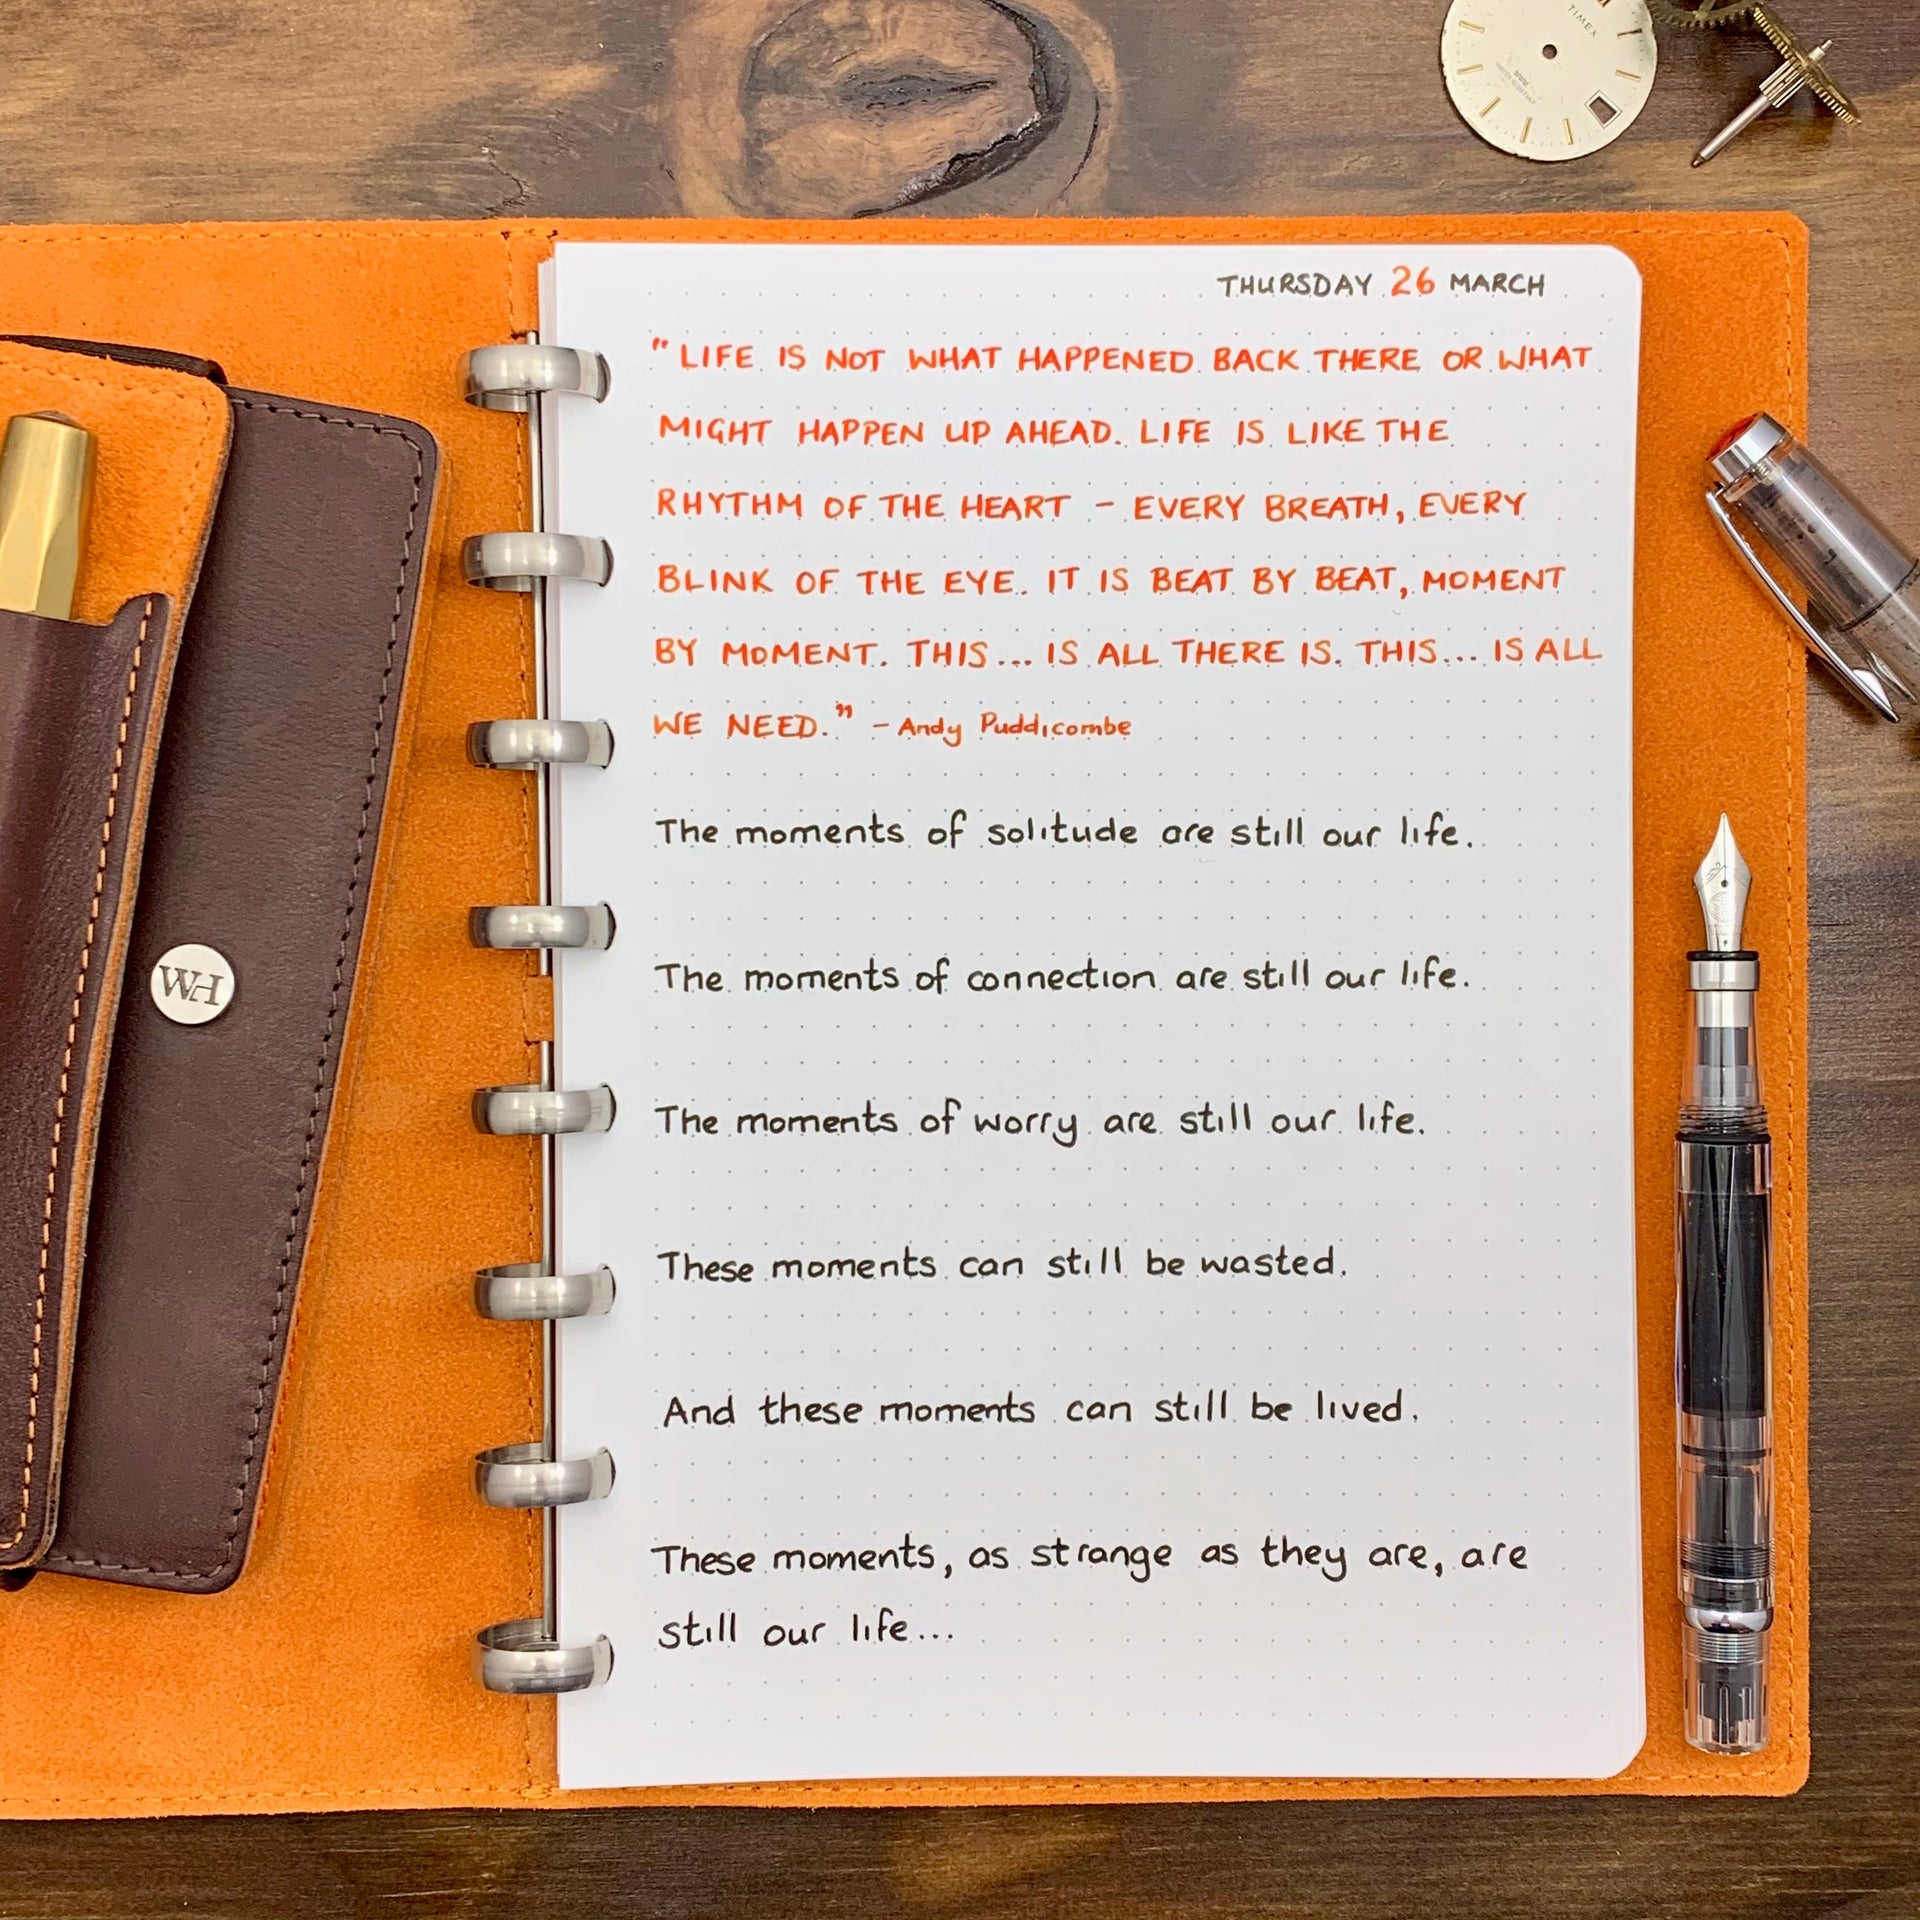 TIMEX
WATER RESISTANT
THURSDAY 26 MARCH
"LIFE IS NOT WHAT HAPPENED BACK THERE OR WHAT
MIGHT HAPPEN UP AHEAD. LIFE IS LIKE THE
RHYTHM OF THE HEART – EVERY BREATH, EVERY
BLINK OF THE EYE. IT IS BEAT BY BEAT, MOMENT
BY MOMENT. THIS... IS ALL THERE IS. THIS... IS ALL
WE NEED." – Andy Puddicombe
The moments of solitude are still our life.
The moments of connection are still our life.
WH
The moments of worry are still our life.
These moments can still be wasted.
And these moments can still be lived.
These moments, as strange as they are, are
still our life...